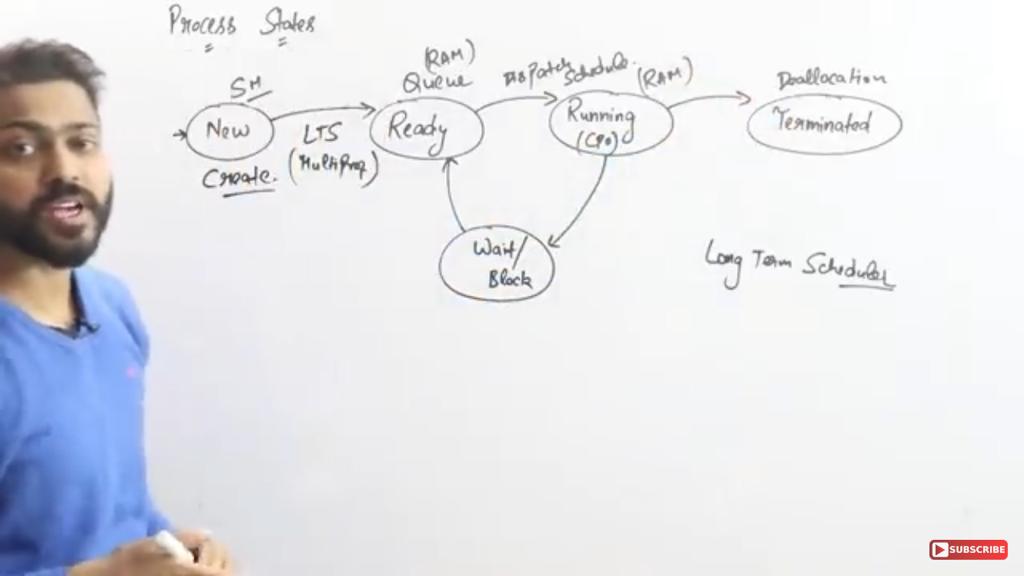 Process States
SM
New
Create.
LTS
(MultiProg)
(RAM)
Queue
Ready
Dispatch
Schedule.
(RAM)
Running
(CPU)
Deallocation
Terminated
Wait/
Block
Long Term Scheduler
SUBSCRIBE